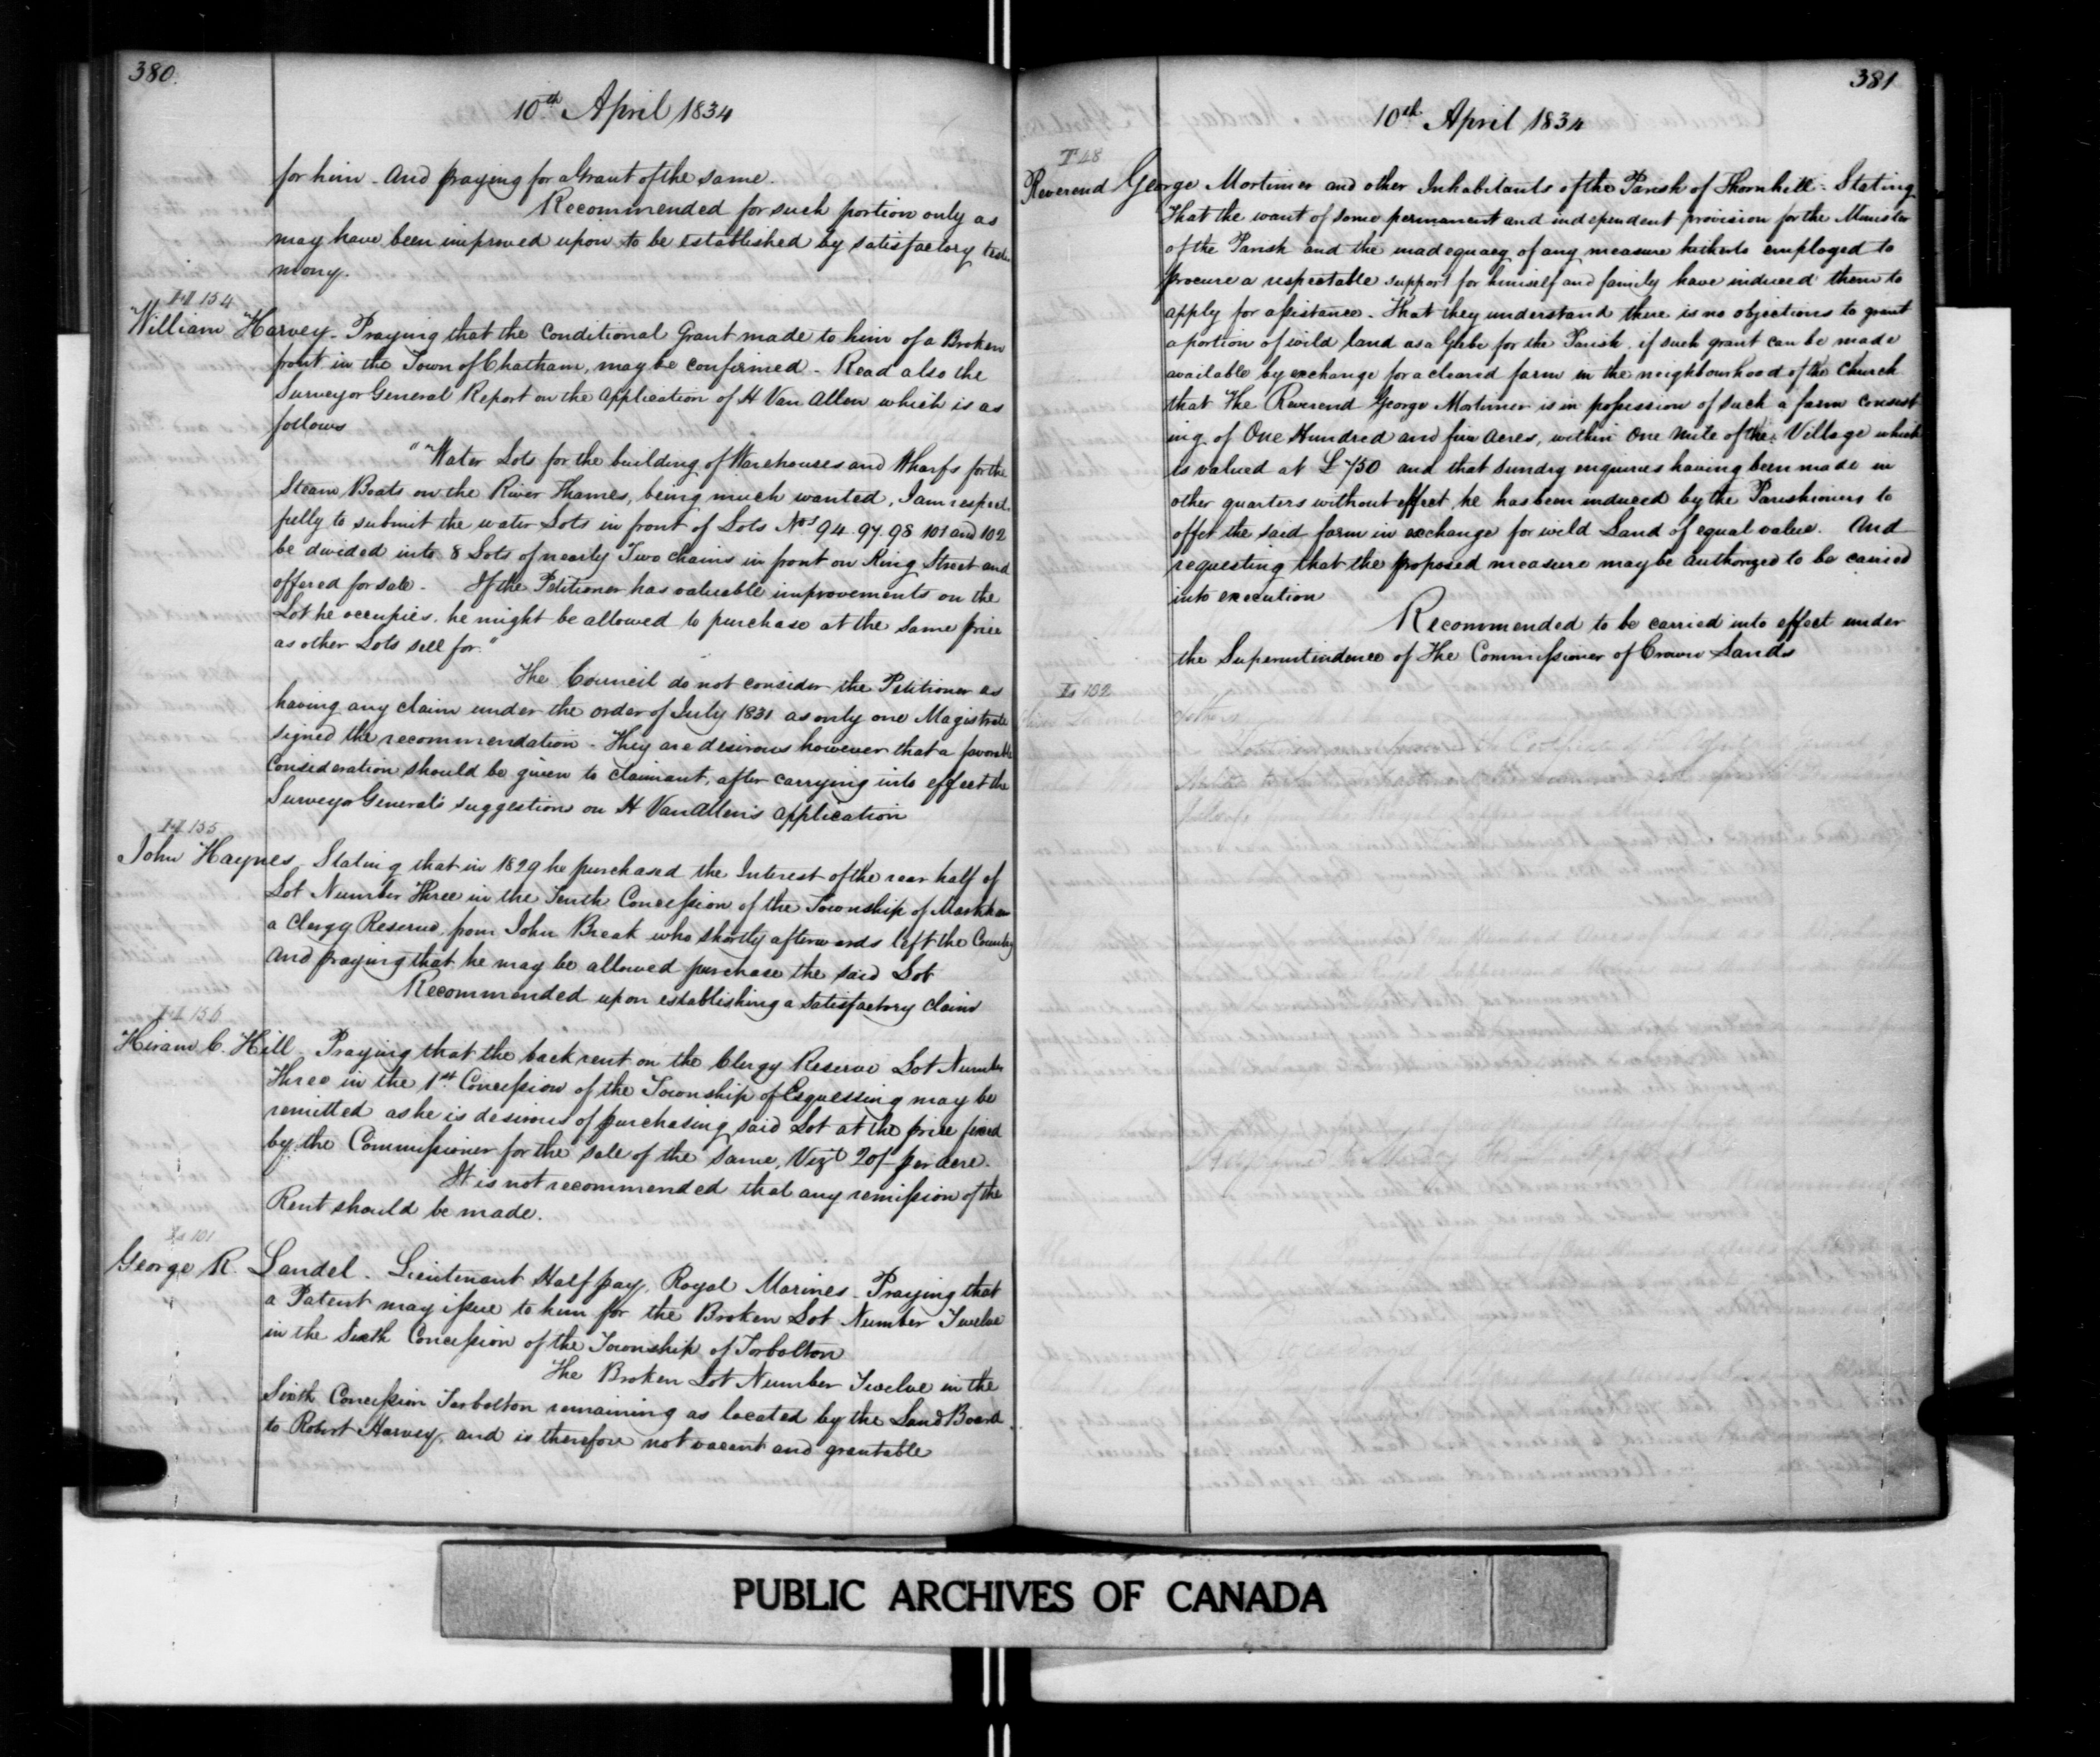 380.
10th April 1834
for him - And praying for a Grant of the same.
Recommended for such portion only as
may have been improved upon to be established by satisfactory testi
mony.
H 154
William Harvey - Praying that the Conditional Grant made to him of a Broken
front in the Town of Chatham, may be confirmed - Read also the
Surveyor General Report on the Application of H Van Allen which is as
follows
"Water Lots for the building of Warehouses and Wharfs for the
Steam Boats on the River Thames, being much wanted, I am respect
fully to submit the water Lots in front of Lots Nos 94. 97. 98 101 and 102
be divided into 8 Lots of nearly Two chains in front on King Street and
offered for sale - If the Petitioner has valuable improvements on the
Lot he occupies, he might be allowed to purchase at the same price
as other Lots sell for."
The Council do not consider the Petitioner as
having any claim under the order of July 1831 as only one Magistrate
signed the recommendation - They are desirous however that a favorable
Consideration should be given to claimant, after carrying into effect the
Surveyor General's suggestions on H VanAllen's application
H 155
John Haynes - Stating that in 1829 he purchased the Interest of the rear half of
Lot Number Three in the Tenth Concession of the Township of Markham
a Clergy Reserve, from John Break who shortly afterwards left the Country
And praying that he may be allowed purchase the said Lot
Recommended upon establishing a satisfactory claim
H 156
Hiram C. Hill - Praying that the back rent on the Clergy Reserve Lot Number
Three in the 1st Concession of the Township of Esquessing may be
remitted as he is desirous of purchasing said Lot at the price fixed
by the Commissioner for the sale of the same, Vizt 20/- per acre.
It is not recommended that any remission of the
Rent should be made.
L 101
George R. Landel - Lieutenant Half pay, Royal Marines - Praying that
a Patent may issue to him for the Broken Lot Number Twelve
in the Sixth Concession of the Township of Torbolton
The Broken Lot Number Twelve in the
Sixth Concession Torbolton remaining as located by the Land Board
to Robert Harvey, and is therefore not vacant and grantable
381
10th April 1834
T 48
Reverend George Mortimer and other Inhabitants of the Parish of Thornhill - Stating
That the want of some permanent and independent provision for the Minister
of the Parish and the inadequacy of any measure hitherto employed to
procure a respectable support for himself and family have induced them to
apply for assistance - That they understand there is no objections to grant
a portion of wild land as a Glebe for the Parish, if such grant can be made
available by exchange for a cleared farm in the neighbourhood of the Church
that The Reverend George Mortimer is in possession of such a farm consist
ing of One Hundred and five Acres, within One Mile of the Village which
is valued at £750 and that sundry enquiries having been made in
other quarters without effect, he has been induced by the Parishioners to
offer the said farm in exchange for wild Land of equal value. And
requesting that the proposed measure may be authorized to be carried
into execution
Recommended to be carried into effect under
the Superintendence of The Commissioner of Crown Lands
L 102
PUBLIC ARCHIVES OF CANADA